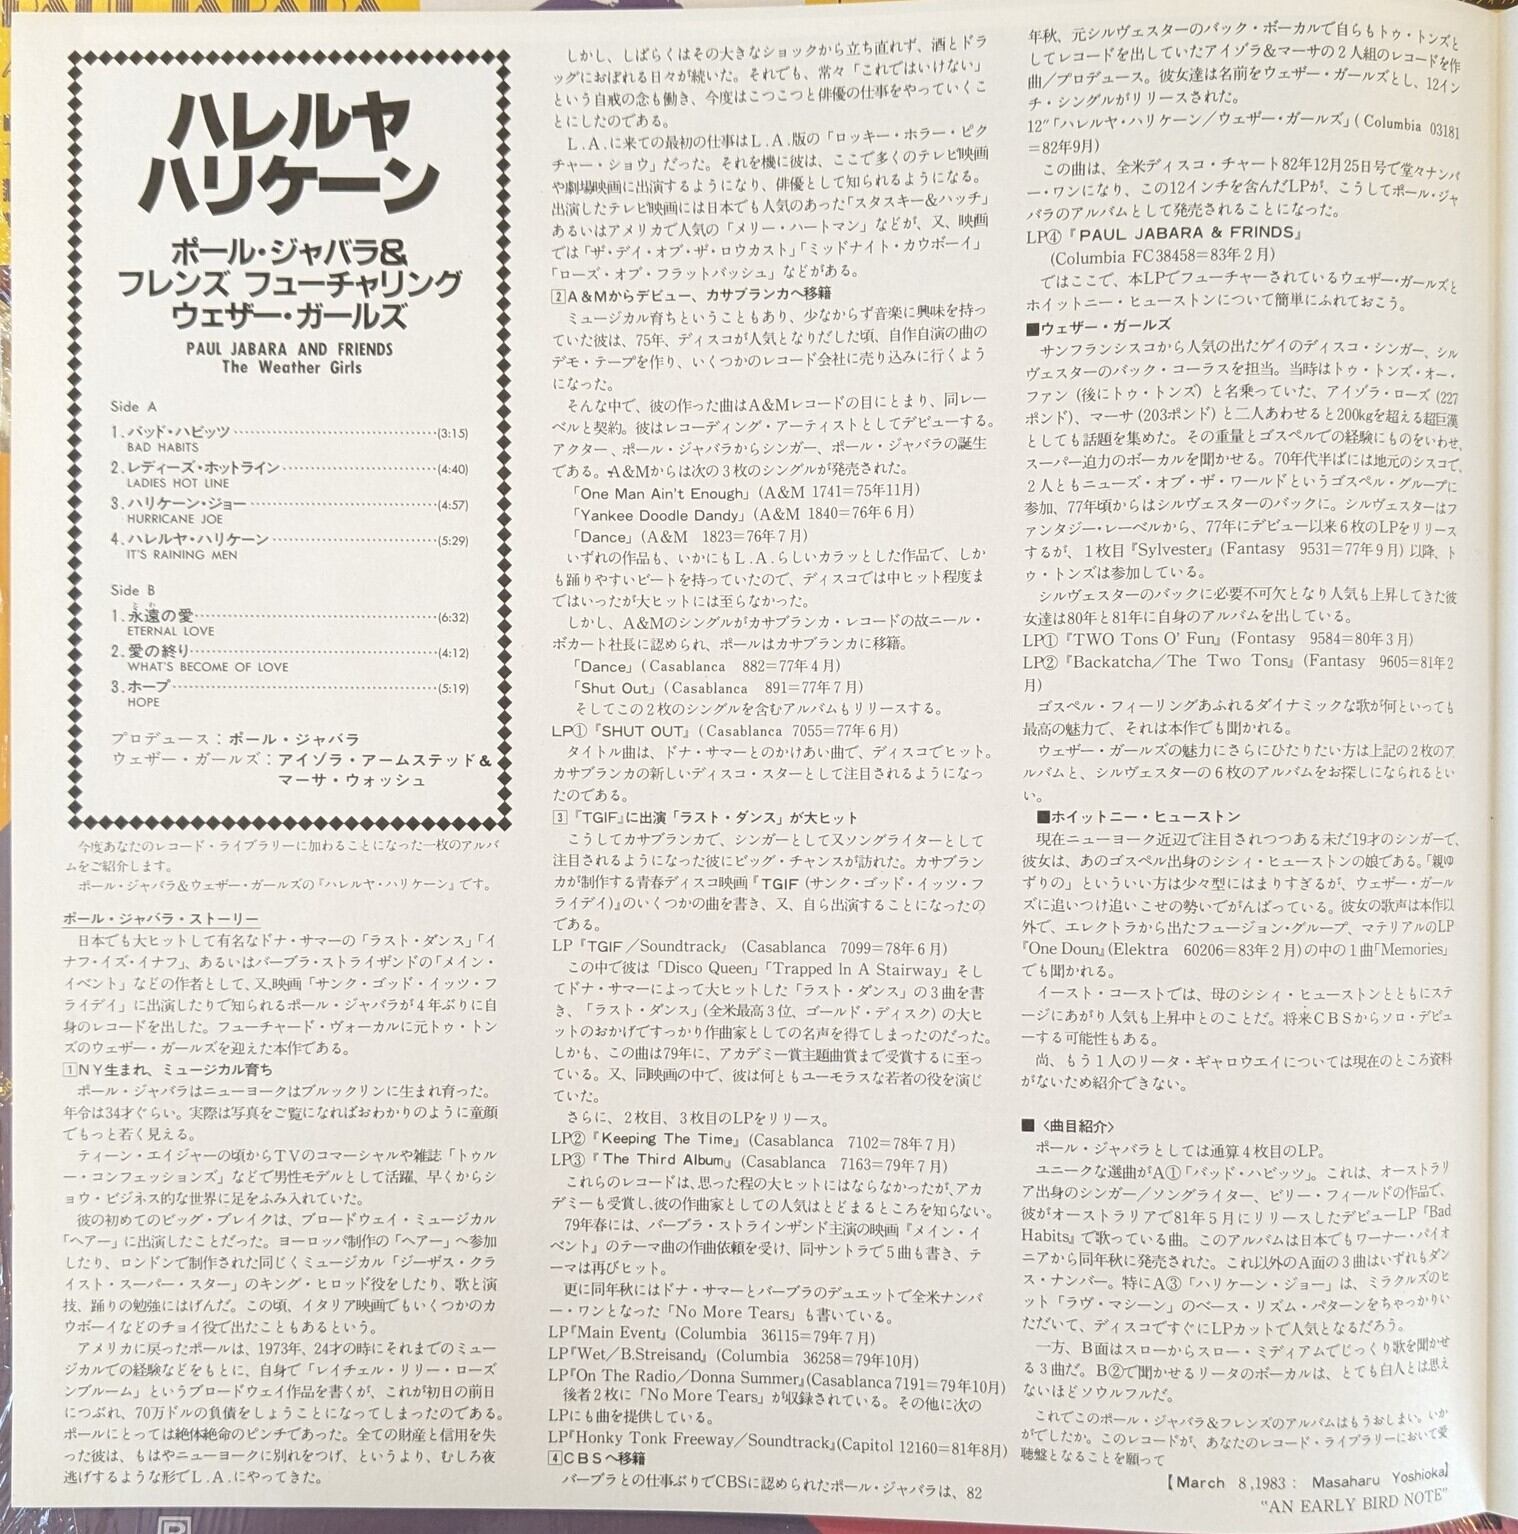 ハレルヤ
ハリケーン
ポール・ジャバラ&
フレンズ フューチャリング
ウェザー・ガールズ
PAUL JABARA AND FRIENDS
The Weather Girls
Side A
1. バッド・ハビッツ (3:15)
BAD HABITS
2. レディーズ・ホットライン (4:40)
LADIES HOT LINE
3. ハリケーン・ジョー (4:57)
HURRICANE JOE
4. ハレルヤ・ハリケーン (5:29)
IT'S RAINING MEN
Side B
1. 永遠の愛 (6:32)
ETERNAL LOVE
2. 愛の終り (4:12)
WHAT'S BECOME OF LOVE
3. ホープ (5:19)
HOPE
プロデュース：ポール・ジャバラ
ウェザー・ガールズ：アイゾラ・アームステッド&
マーサ・ウォッシュ
今度あなたのレコード・ライブラリーに加わることになった一枚のアルバ
ムをご紹介します。
ポール・ジャバラ&ウェザー・ガールズの『ハレルヤ・ハリケーン』です。
ポール・ジャバラ・ストーリー
日本でも大ヒットして有名なドナ・サマーの「ラスト・ダンス」「イ
ナフ・イズ・イナフ」、あるいはバーブラ・ストライザンドの「メイン・
イベント」などの作者として、又、映画「サンク・ゴッド・イッツ・フ
ライデイ」に出演したりで知られるポール・ジャバラが4年ぶりに自
身のレコードを出した。フューチャード・ヴォーカルに元トゥ・トン
ズのウェザー・ガールズを迎えた本作である。
1 NY生まれ、ミュージカル育ち
ポール・ジャバラはニューヨークはブルックリンに生まれ育った。
年令は34才ぐらい。実際は写真をご覧になればおわかりのように童顔
でもっと若く見える。
ティーン・エイジャーの頃からTVのコマーシャルや雑誌「トゥル
ー・コンフェッションズ」などで男性モデルとして活躍、早くからシ
ョウ・ビジネス的な世界に足をふみ入れていた。
彼の初めてのビッグ・ブレイクは、ブロードウェイ・ミュージカル
「ヘアー」に出演したことだった。ヨーロッパ制作の「ヘアー」へ参加
したり、ロンドンで制作された同じくミュージカル「ジーザス・クラ
イスト・スーパー・スター」のキング・ヒロッド役をしたり、歌と演
技、踊りの勉強にはげんだ。この頃、イタリア映画でもいくつかのカ
ウボーイなどのチョイ役で出たこともあるという。
アメリカに戻ったポールは、1973年、24才の時にそれまでのミュー
ジカルでの経験などをもとに、自身で「レイチェル・リリー・ローズ
ンブルーム」というブロードウェイ作品を書くが、これが初日の前日
につぶれ、70万ドルの負債をしょうことになってしまったのである。
ポールにとっては絶体絶命のピンチであった。全ての財産と信用を失
った彼は、もはやニューヨークに別れをつげ、というより、むしろ夜
逃げするような形でL.A.にやってきた。
しかし、しばらくはその大きなショックから立ち直れず、酒とドラ
ッグにおぼれる日々が続いた。それでも、常々「これではいけない」
という自戒の念も働き、今度はこつこつと俳優の仕事をやっていくこ
とにしたのである。
L.A.に来ての最初の仕事はL.A.版の「ロッキー・ホラー・ピク
チャー・ショウ」だった。それを機に彼は、ここで多くのテレビ映画
や劇場映画に出演するようになり、俳優として知られるようになる。
出演したテレビ映画には日本でも人気のあった「スタスキー&ハッチ」
あるいはアメリカで人気の「メリー・ハートマン」などが、又、映画
では「ザ・デイ・オブ・ザ・ロウカスト」「ミッドナイト・カウボーイ」
「ローズ・オブ・フラットバッシュ」などがある。
2 A&Mからデビュー、カサブランカへ移籍
ミュージカル育ちということもあり、少なからず音楽に興味を持っ
ていた彼は、75年、ディスコが人気となりだした頃、自作自演の曲の
デモ・テープを作り、いくつかのレコード会社に売り込みに行くよう
になった。
そんな中で、彼の作った曲はA&Mレコードの目にとまり、同レー
ベルと契約。彼はレコーディング・アーティストとしてデビューする。
アクター、ポール・ジャバラからシンガー、ポール・ジャバラの誕生
である。A&Mからは次の3枚のシングルが発売された。
「One Man Ain't Enough」(A&M 1741＝75年11月)
「Yankee Doodle Dandy」(A&M 1840＝76年6月)
「Dance」(A&M 1823＝76年7月)
いずれの作品も、いかにもL.A.らしいカラッとした作品で、しか
も踊りやすいビートを持っていたので、ディスコでは中ヒット程度ま
ではいったが大ヒットには至らなかった。
しかし、A&Mのシングルがカサブランカ・レコードの故ニール・
ボガート社長に認められ、ポールはカサブランカに移籍。
「Dance」(Casablanca 882＝77年4月)
「Shut Out」(Casablanca 891＝77年7月)
そしてこの2枚のシングルを含むアルバムもリリースする。
LP①『SHUT OUT』(Casablanca 7055＝77年6月)
タイトル曲は、ドナ・サマーとのかけあい曲で、ディスコでヒット。
カサブランカの新しいディスコ・スターとして注目されるようになっ
たのである。
3 『TGIF』に出演「ラスト・ダンス」が大ヒット
こうしてカサブランカで、シンガーとして又ソングライターとして
注目されるようになった彼にビッグ・チャンスが訪れた。カサブラン
カが制作する青春ディスコ映画『TGIF (サンク・ゴッド・イッツ・フ
ライデイ)』のいくつかの曲を書き、又、自ら出演することになったの
である。
LP『TGIF／Soundtrack』 (Casablanca 7099＝78年6月)
この中で彼は「Disco Queen」「Trapped In A Stairway」そし
てドナ・サマーによって大ヒットした「ラスト・ダンス」の3曲を書
き、「ラスト・ダンス」(全米最高3位、ゴールド・ディスク) の大ヒ
ットのおかげですっかり作曲家としての名声を得てしまったのだった。
しかも、この曲は79年に、アカデミー賞主題曲賞まで受賞するに至っ
ている。又、同映画の中で、彼は何ともユーモラスな若者の役を演じ
ていた。
さらに、2枚目、3枚目のLPをリリース。
LP②『Keeping The Time』(Casablanca 7102＝78年7月)
LP③『The Third Album』(Casablanca 7163＝79年7月)
これらのレコードは、思った程の大ヒットにはならなかったが、アカ
デミーも受賞し、彼の作曲家としての人気はとどまるところを知らない。
79年春には、バーブラ・ストラインザンド主演の映画『メイン・イ
ベント』のテーマ曲の作曲依頼を受け、同サントラで5曲も書き、テ
ーマは再びヒット。
更に同年秋にはドナ・サマーとバーブラのデュエットで全米ナンバ
ー・ワンとなった「No More Tears」も書いている。
LP『Main Event』(Columbia 36115＝79年7月)
LP『Wet／B.Streisand』(Columbia 36258＝79年10月)
LP『On The Radio／Donna Summer』(Casablanca 7191＝79年10月)
後者2枚に「No More Tears」が収録されている。その他に次の
LPにも曲を提供している。
LP『Honky Tonk Freeway／Soundtrack』(Capitol 12160＝81年8月)
4 CBSへ移籍
バーブラとの仕事ぶりでCBSに認められたポール・ジャバラは、82
年秋、元シルヴェスターのバック・ボーカルで自らもトゥ・トンズと
してレコードを出していたアイゾラ&マーサの2人組のレコードを作
曲／プロデュース。彼女達は名前をウェザー・ガールズとし、12イン
チ・シングルがリリースされた。
12″「ハレルヤ・ハリケーン／ウェザー・ガールズ」(Columbia 03181
＝82年9月)
この曲は、全米ディスコ・チャート82年12月25日号で堂々ナンバ
ー・ワンになり、この12インチを含んだLPが、こうしてポール・ジャ
バラのアルバムとして発売されることになった。
LP④『PAUL JABARA & FRINDS』
(Columbia FC38458＝83年2月)
ではここで、本LPでフューチャーされているウェザー・ガールズと
ホイットニー・ヒューストンについて簡単にふれておこう。
■ウェザー・ガールズ
サンフランシスコから人気の出たゲイのディスコ・シンガー、シル
ヴェスターのバック・コーラスを担当。当時はトゥ・トンズ・オー・
ファン (後にトゥ・トンズ) と名乗っていた、アイゾラ・ローズ (227
ポンド)、マーサ (203ポンド) と二人あわせると200kgを超える超巨漢
としても話題を集めた。その重量とゴスペルでの経験にものをいわせ、
スーパー迫力のボーカルを聞かせる。70年代半ばには地元のシスコで、
2人ともニューズ・オブ・ザ・ワールドというゴスペル・グループに
参加、77年頃からはシルヴェスターのバックに。シルヴェスターはフ
ァンタジー・レーベルから、77年にデビュー以来6枚のLPをリリース
するが、1枚目『Sylvester』(Fantasy 9531＝77年9月) 以降、ト
ゥ・トンズは参加している。
シルヴェスターのバックに必要不可欠となり人気も上昇してきた彼
女達は80年と81年に自身のアルバムを出している。
LP①『TWO Tons O' Fun』(Fontasy 9584＝80年3月)
LP②『Backatcha／The Two Tons』(Fantasy 9605＝81年2
月)
ゴスペル・フィーリングあふれるダイナミックな歌が何といっても
最高の魅力で、それは本作でも聞かれる。
ウェザー・ガールズの魅力にさらにひたりたい方は上記の2枚のア
ルバムと、シルヴェスターの6枚のアルバムをお探しになられるとい
い。
■ホイットニー・ヒューストン
現在ニューヨーク近辺で注目されつつある未だ19才のシンガーで、
彼女は、あのゴスペル出身のシシィ・ヒューストンの娘である。「親ゆ
ずりの」といういい方は少々型にはまりすぎるが、ウェザー・ガール
ズに追いつけ追いこせの勢いでがんばっている。彼女の歌声は本作以
外で、エレクトラから出たフュージョン・グループ、マテリアルのLP
『One Doun』(Elektra 60206＝83年2月)の中の1曲「Memories」
でも聞かれる。
イースト・コーストでは、母のシシィ・ヒューストンとともにステ
ージにあがり人気も上昇中とのことだ。将来CBSからソロ・デビュ
ーする可能性もある。
尚、もう1人のリータ・ギャロウエイについては現在のところ資料
がないため紹介できない。
■〈曲目紹介〉
ポール・ジャバラとしては通算4枚目のLP。
ユニークな選曲がA①「バッド・ハビッツ」。これは、オーストラリ
ア出身のシンガー／ソングライター、ビリー・フィールドの作品で、
彼がオーストラリアで81年5月にリリースしたデビューLP『Bad
Habits』で歌っている曲。このアルバムは日本でもワーナー・パイオ
ニアから同年秋に発売された。これ以外のA面の3曲はいずれもダン
ス・ナンバー。特にA③「ハリケーン・ジョー」は、ミラクルズのヒ
ット「ラヴ・マシーン」のベース・リズム・パターンをちゃっかりい
ただいて、ディスコですぐにLPカットで人気となるだろう。
一方、B面はスローからスロー・ミディアムでじっくり歌を聞かせ
る3曲だ。B②で聞かせるリータのボーカルは、とても白人とは思え
ないほどソウルフルだ。
これでこのポール・ジャバラ&フレンズのアルバムはもうおしまい。いか
がでしたか。このレコードが、あなたのレコード・ライブラリーにおいて愛
聴盤となることを願って
【March 8,1983： Masaharu Yoshioka】
"AN EARLY BIRD NOTE"